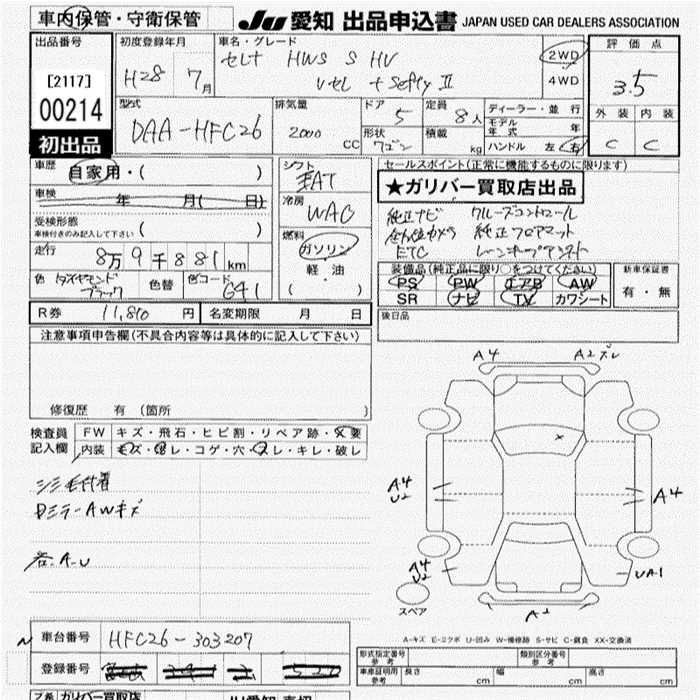 車内保管・守衛保管
JU 愛知 出品申込書 JAPAN USED CAR DEALERS ASSOCIATION
出品番号
[2117]
00214
初出品
初度登録年月
H28 7月
車名・グレード
セレナ HWS S HV
Vセレ + Safty II
2WD
4WD
評価点
3.5
外装 内装
C C
型式
DAA-HFC26
排気量
2000 CC
ドア 5
形状 ワゴン
定員 8人
積載 kg
ディーラー・並行
モデル年式 年
ハンドル 左 右
車歴 自家用・( )
車検 年 月( 日)
受検形態
車検付きのみ記入して下さい ( )
走行 8万9千881km
色 ダイヤモンドブラック 色替 色コード G41
シフト
FAT
冷房
WAC
燃料
ガソリン
軽・油
( )
セールスポイント(正常に機能するものに限ります)
★ガリバー買取店出品
純正ナビ クルーズコントロール
全方位カメラ 純正フロアマット
ETC レーンキープアシスト
装備品(純正品に限り○をつけてください)
PS PW エアB AW
SR ナビ TV カワシート
新車保証書
有・無
R券 11,810 円 名変期限 月 日
後日品
注意事項申告欄(不具合内容等は具体的に記入して下さい)
修復歴 有 (箇所 )
検査員記入欄
FW キズ・飛石・ヒビ割・リペア跡・X要
内装 キズ・汚レ・コゲ・穴・スレ・キレ・破レ
シミ毛付着
Dミラー AWキズ
各A.U
A4 A2ズレ
A4
U2
A4
A4
U2
UA1
スペア
A2
A-キズ E-エクボ U-凹み W-補修跡 S-サビ C-腐食 XX-交換済
車台番号 HFC26-303207
登録番号
形式指定番号 参考
類別区分番号 参考
車庫証明用 参考 長さ cm 幅 cm 高さ cm
ガリバー買取店
JU愛知